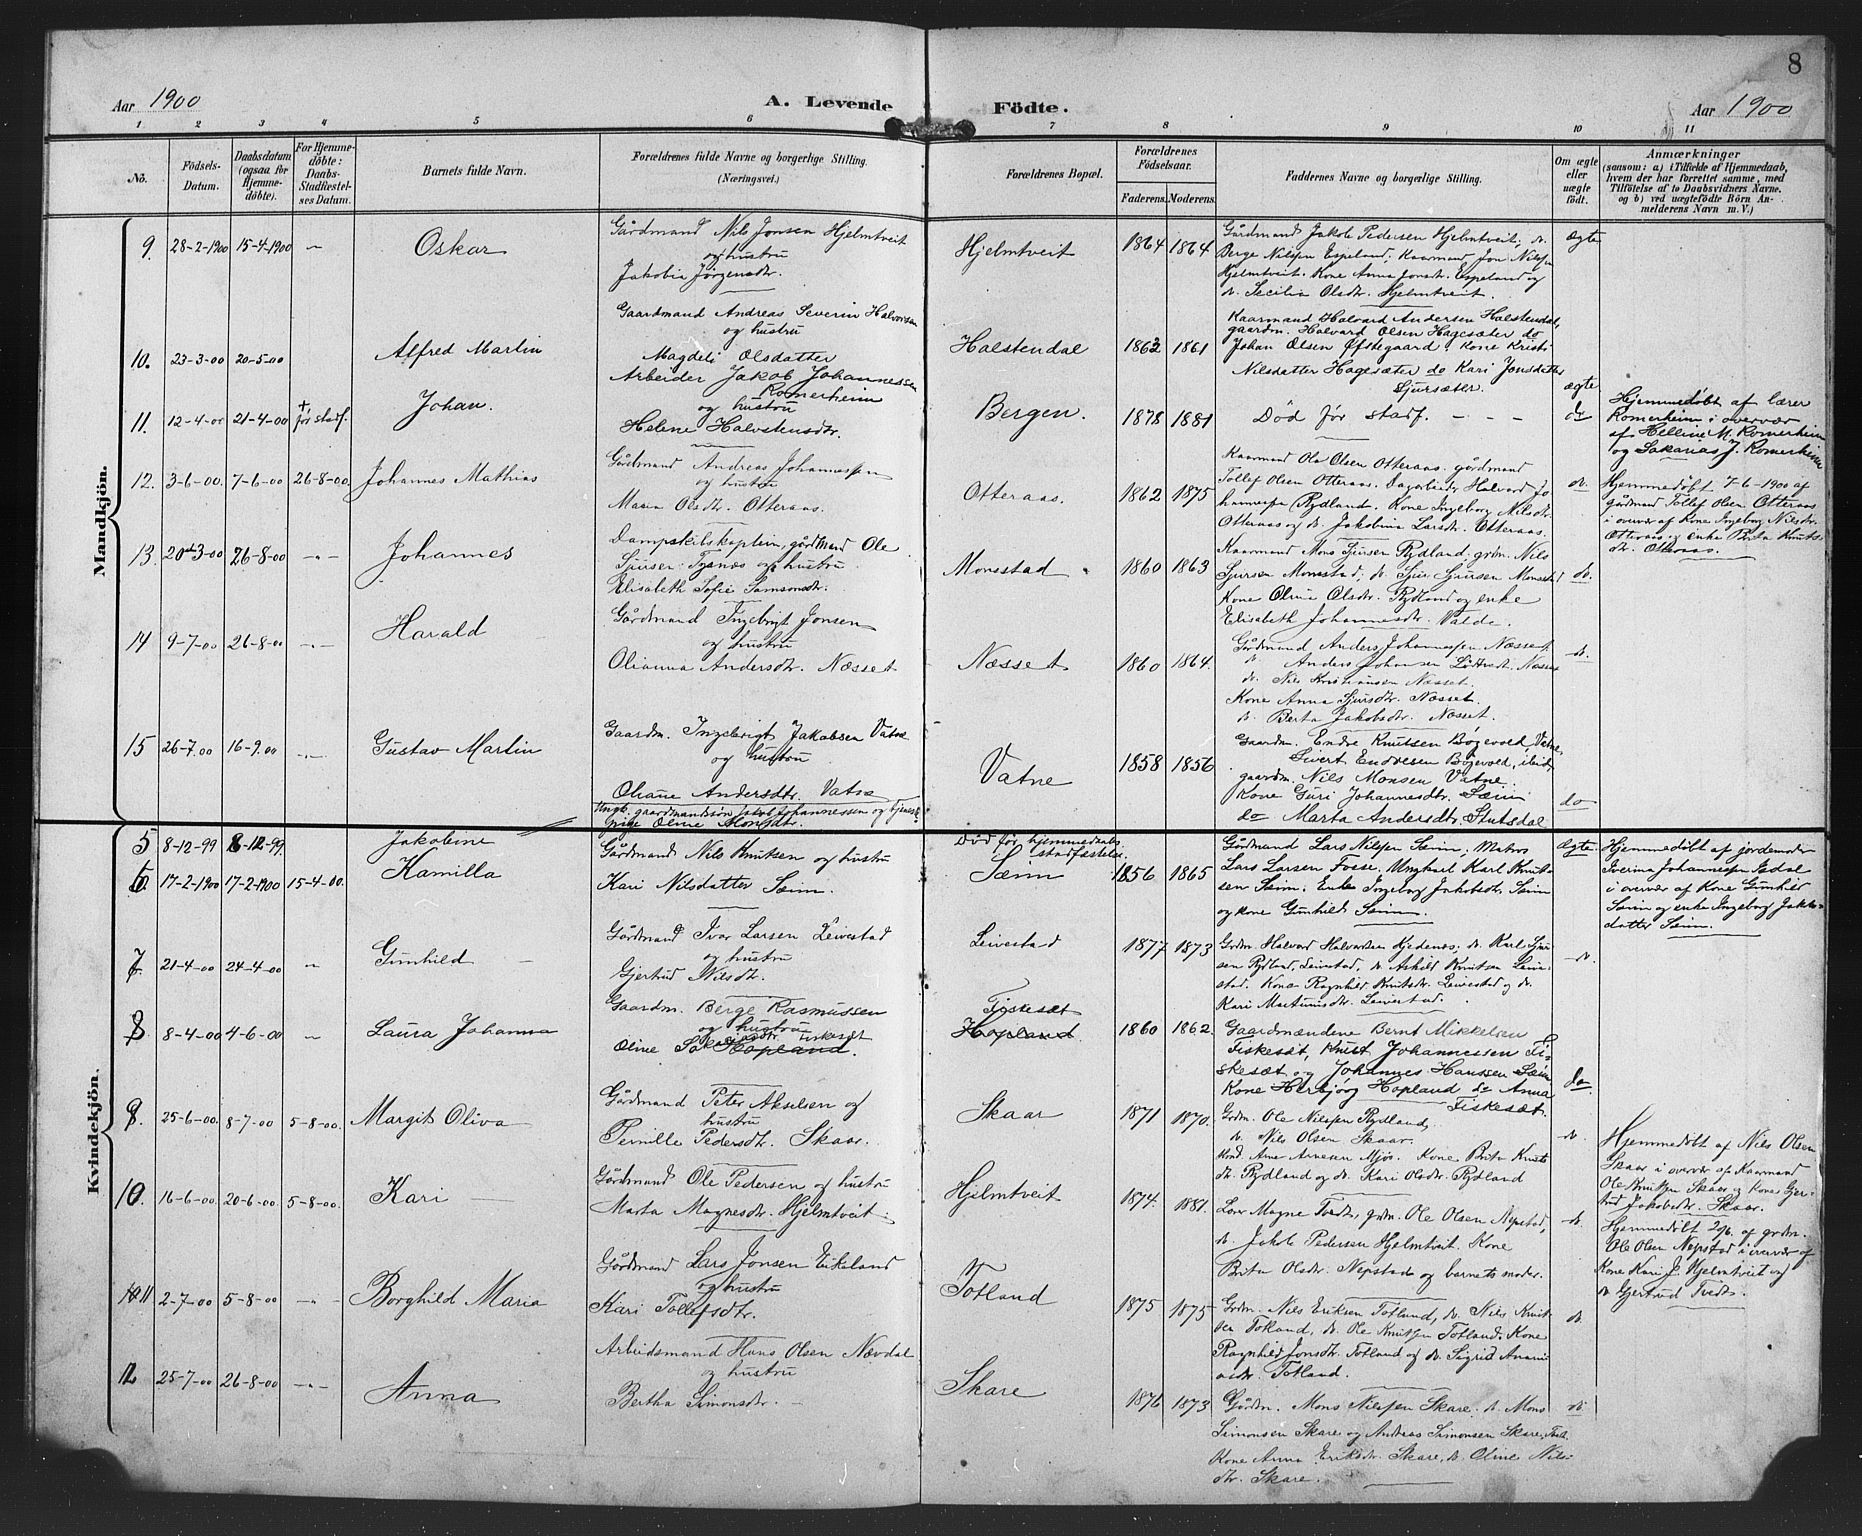 8
Aar 1900
A. Levende Födte.
Aar 1900
1 2 3 4 5 6 7 8 9 10 11
No.
Födsels-
Datum.
Daabsdatum
(ogsaa for
Hjemme-
döbte).
For Hjemme-
döbte:
Daabs-
Stadfæstel-
ses Datum.
Barnets fulde Navn.
Forældrenes fulde Navne og borgerlige Stilling.
(Næringsvei.)
Forældrenes Bopæl.
Forældrenes
Födselsaar.
Faderens. Moderens.
Faddernes Navne og borgerlige Stilling.
Om ægte
eller
uægte
födt.
Anmærkninger
(saasom: a) i Tilfælde af Hjemmedaab,
hvem der har forrettet samme, med
Tilföielse af to Daabsvidners Navne.
og b) ved uægtefödte Börn An-
melderens Navn m. V.)
Mandkjön.
9. 28-2-1900 15-4-1900 "
Oskar
Gårdmand Nils Jonsen Hjelmtveit
og hustru
Jakobia Jørgensdtr.
Hjelmtveit
1864 1864
Gårdmand Jakob Pedersen Hjelmtveit; do.
Berge Nilssen Espeland; Kaarmand Jon Nilssen
Hjelmtveit. Kone Anna Jonsdtr. Espeland og
do. Secilia Olsdtr. Hjelmtveit.
ægte
10. 23-3-00 20-5-00
Alfred Martin
Gaardmand Andreas Severin Halvorsen
og hustru
Magdeli Olsdatter
Halstendal
1862 1861
Kaarmand Halvard Andersen Halstendal,
gaardm. Halvard Olsen Hagesæter do
Johan Olsen Øfstegaard. Kone Kristi
Nilsdatter Hagesæter do Kari Jonsdatter
Sjursæter.
ægte
11. 12-4-00 21-4-00 + før stadf.
Johan.
Arbeider Jakob Johannessen
Romerheim
og hustru
Helene Halvstensdtr.
Bergen.
1878 1881
Død før stadf. - - -
do
Hjemmedøbt af lærer
Romerheim i overvær
af Helline M. Romerheim
og Sakarias J. Romerheim
12. 3-6-00 7-6-00 26-8-00
Johannes Mathias
Gårdmand Andreas Johannessen
og hustru
Maria Olsdtr. Otteraas.
Otteraas.
1862 1875
Kaarmand Ole Olsen Otteraas. gårdmand
Tollef Olsen Otteraas. Dagarbeider Halvard Jo-
hannessen Rydland. Kone Ingeborg Nilsdtr.
Otteraas og do. Jakobina Larsdtr. Otteraas.
do.
Hjemmedøbt 7-6-1900 af
gårdmand Tollef Olsen Otteraas
i overvær af Kone Ingeborg Nilsdtr.
Otteraas og enke Brita Knuts-
dtr. Otteraas.
13. 20-3-00 26-8-00 -"-
Johannes
Dampskibskaptein, gårdmand Ole
Sjursen Tysnes og hustru
Elisabeth Sofie Samsonsdtr.
Monsstad
1860 1863
Kaarmand Mons Sjursen Rydland, grdm. Nils
Sjursen Monsstad; do. Sjur Sjursen Monsstad
Kone Olina Olsdtr. Rydland og enke
Elisabeth Johannesdtr. Valde.
do.
14 9-7-00 26-8-00 -"-
Harald
Gårdmand Ingebrigt Jonsen
og hustru
Olianna Andersdtr. Næsset
Næsset
1860 1864.
Gårdmand Anders Johannessen Næsset
do. Anders Johansen Næsset
do. Nils Kristiansen Næsset.
Kone Anna Sjursdtr. Næsset.
do. Berta Jakobsdtr. Næsset.
do.
15 26-7-00 16-9-00 -"-
Gustav Martin
Gaardm. Ingebrigt Jakobsen Vatne
og hustru
Oliane Andersdtr. Vatne
Vatne
1858 1856
Gaardm. Endre Knutsen Bøgevold, Vatne,
Sivert Endresen Bøgevold, ibid.
gaardm. Nils Monsen Vatne
Kone Guri Johannesdtr. Sæim
do Marta Andersdtr. Stutsdal
do
Kvindekjön.
5 8-12-99 8-12-99.
Jakobine
Ungk. gaardmandsøn Jakob Johannessen og tjeneste-
pige Oline Monsdtr.
Død før hjemmedaabs
stadfæstelse
6. 17-2-1900 17-2-1900 15-4-00.
Kamilla
Gårdmand Nils Knutsen og hustru
Kari Nilsdatter Sæim.
Sæim
1856 1865
Gårdmand Lars Nilssen Sæim; Matros
Lars Larsen Fosse. Ungkarl Karl Knut-
sen Sæim. Enke Ingeborg Jakobsdtr. Sæim
og kone Gunhild Sæim.
ægte
Hjemmedøbt af jordemoder
Iverina Johannessen Sædal
i overvær af Kone Gunhild
Sæim og enke Ingeborg Jakobs-
datter Sæim.
7 21-4-00 24-4-00 "
Gunhild
Gårdmand Ivar Larsen Leivestad
og hustru
Gjertrud Nilsdtr.
Leivestad
1877 1873
Grdm. Halvard Halvardsen Hjedenæs; do. Karl Sju-
sen Rydland, Leivestad, do. Askild Knutsen Leive-
stad. Kone Ragnhild Knutsdtr. Leivestad og do.
Kari Martinusdtr. Leivestad.
do.
8 8-4-00 4-6-00 "
Laura Johanna
Gaardm. Berge Rasmussen
og hustru
Oline Sakariasdtr. Fiskesæt
Hopland.
Fiskesæt
Hopland
1860 1862.
Gaardmændene Bernt Mikkelsen
Fiskesæt, Knut Johannessen Fi-
skesæt og Johannes Hanssen Sæim
Kone Herbjørg Hopland do Anna
Fiskesæt.
do
9. 25-6-00. 8-7-00 5-8-00.
Margit Oliva
Gårdmand Peter Akselsen og
hustru
Pernille Pedersdtr. Skaar.
Skaar
1871 1870.
Grdm. Ole Nilssen Rydland,
do. Nils Olsen Skaar.
Arne Arnesen Mjøs. Kone Brita Knuts-
dtr. Rydland og do. Kari Olsdtr. Rydland
do.
Hjemmedøbt af Nils Olsen
Skaar i overvær af Kaarmand
Ole Knutsen Skaar og kone Gjer-
trud Jakobsdtr. Skaar.
10. 16-6-00. 20-6-00. 5-8-00.
Kari
Gårdmand Ole Pedersen og hustru
Marta Magnesdtr. Hjelmtveit.
Hjelmtveit
1874. 1881.
Lærer Magne Tvedt, grdm. Ole Olsen Nepstad,
do. Jakob Pedersen Hjelmtveit. Kone
Brita Olsdtr. Nepstad og barnets moder.
do.
Hjemmedøbt 20/6. af grdm.
Ole Olsen Nepstad i overvær af
Kone Kari J. Hjelmtveit og
do Gjertrud Tvedt.
11 2-7-00 5-8-00 -"-
Borghild Maria
Gårdmand Lars Jonsen Eikeland
og hustru
Kari Tollefsdtr.
Totland
1875 1875
Grdm. Nils Eriksen Totland, do. Nils Knut-
sen Totland, do. Ole Knutsen Totland. Kone
Ragnhild Jonsdtr. Totland og do. Sigrid
Totland.
do.
12 25-7-00 26-8-00 -"-
Anna
Arbeidsmand Hans Olsen Nævdal
og hustru
Bertha Simonsdtr.
Skare
1876 1873
Gårdm. Mons Nilssen Skare. do. Mons
Simonsen Skare og Andreas Simonsen Skare,
Kone Anna Eriksdtr. Skare, do. Oline Nils-
dtr. Skare.
do